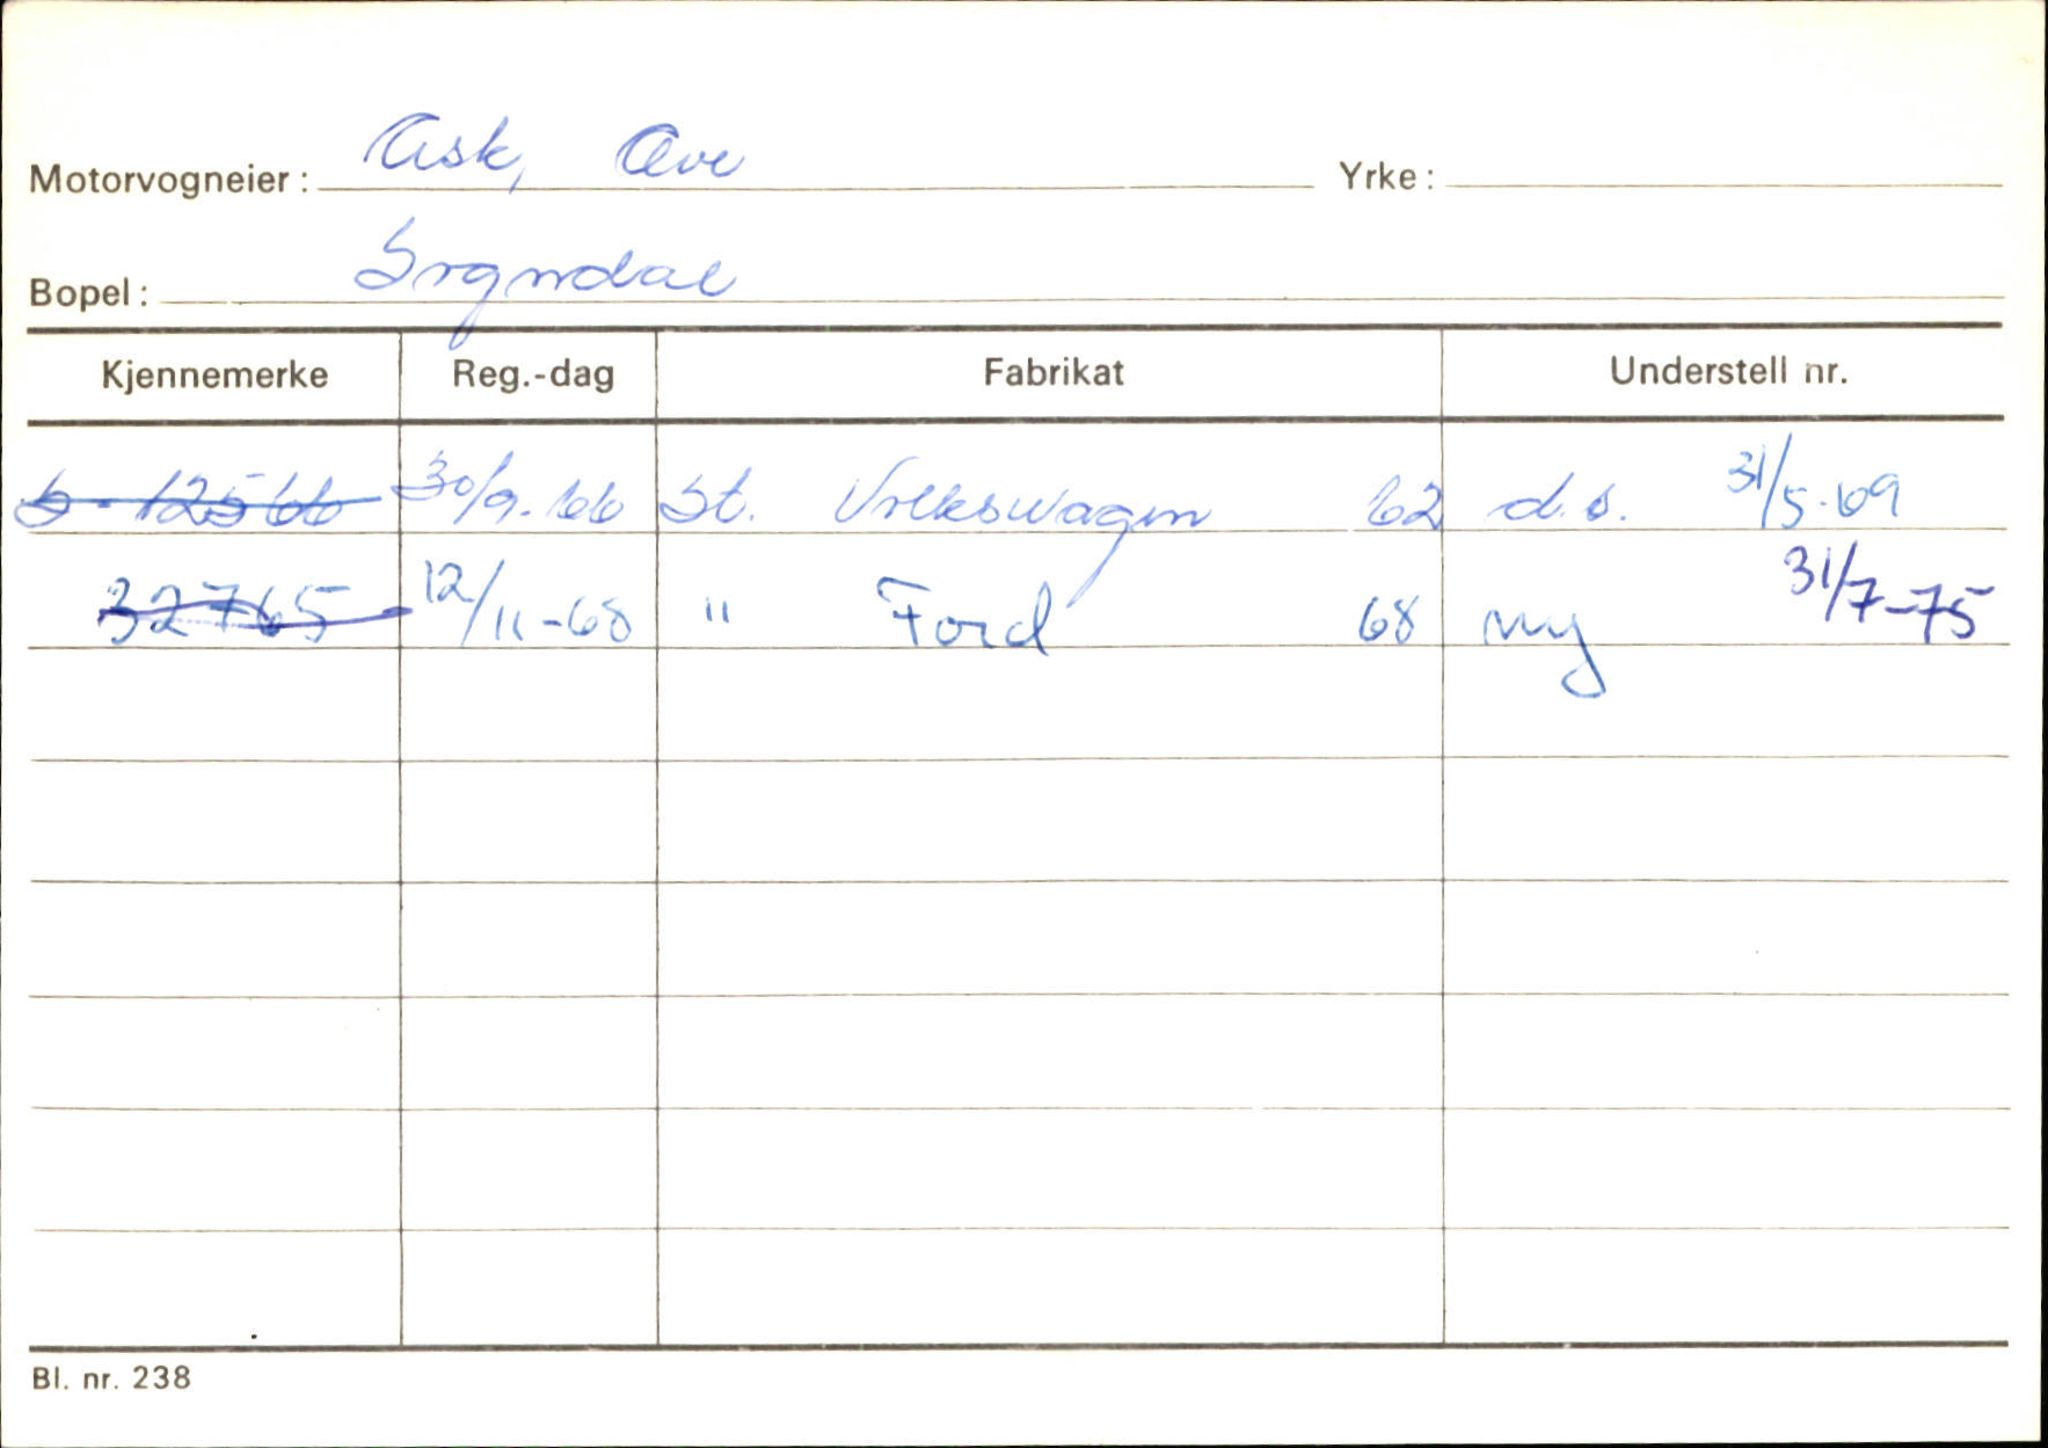 Motorvogneier: Ask, Ove Yrke:
Bopel: Sogndal
Kjennemerke Reg.-dag Fabrikat Understell nr.
S-12566 30/9-66 St. Volkswagen 62 d.s. 31/5-69
32765 12/11-68 " Ford 68 ny 31/7-75
Bl. nr. 238